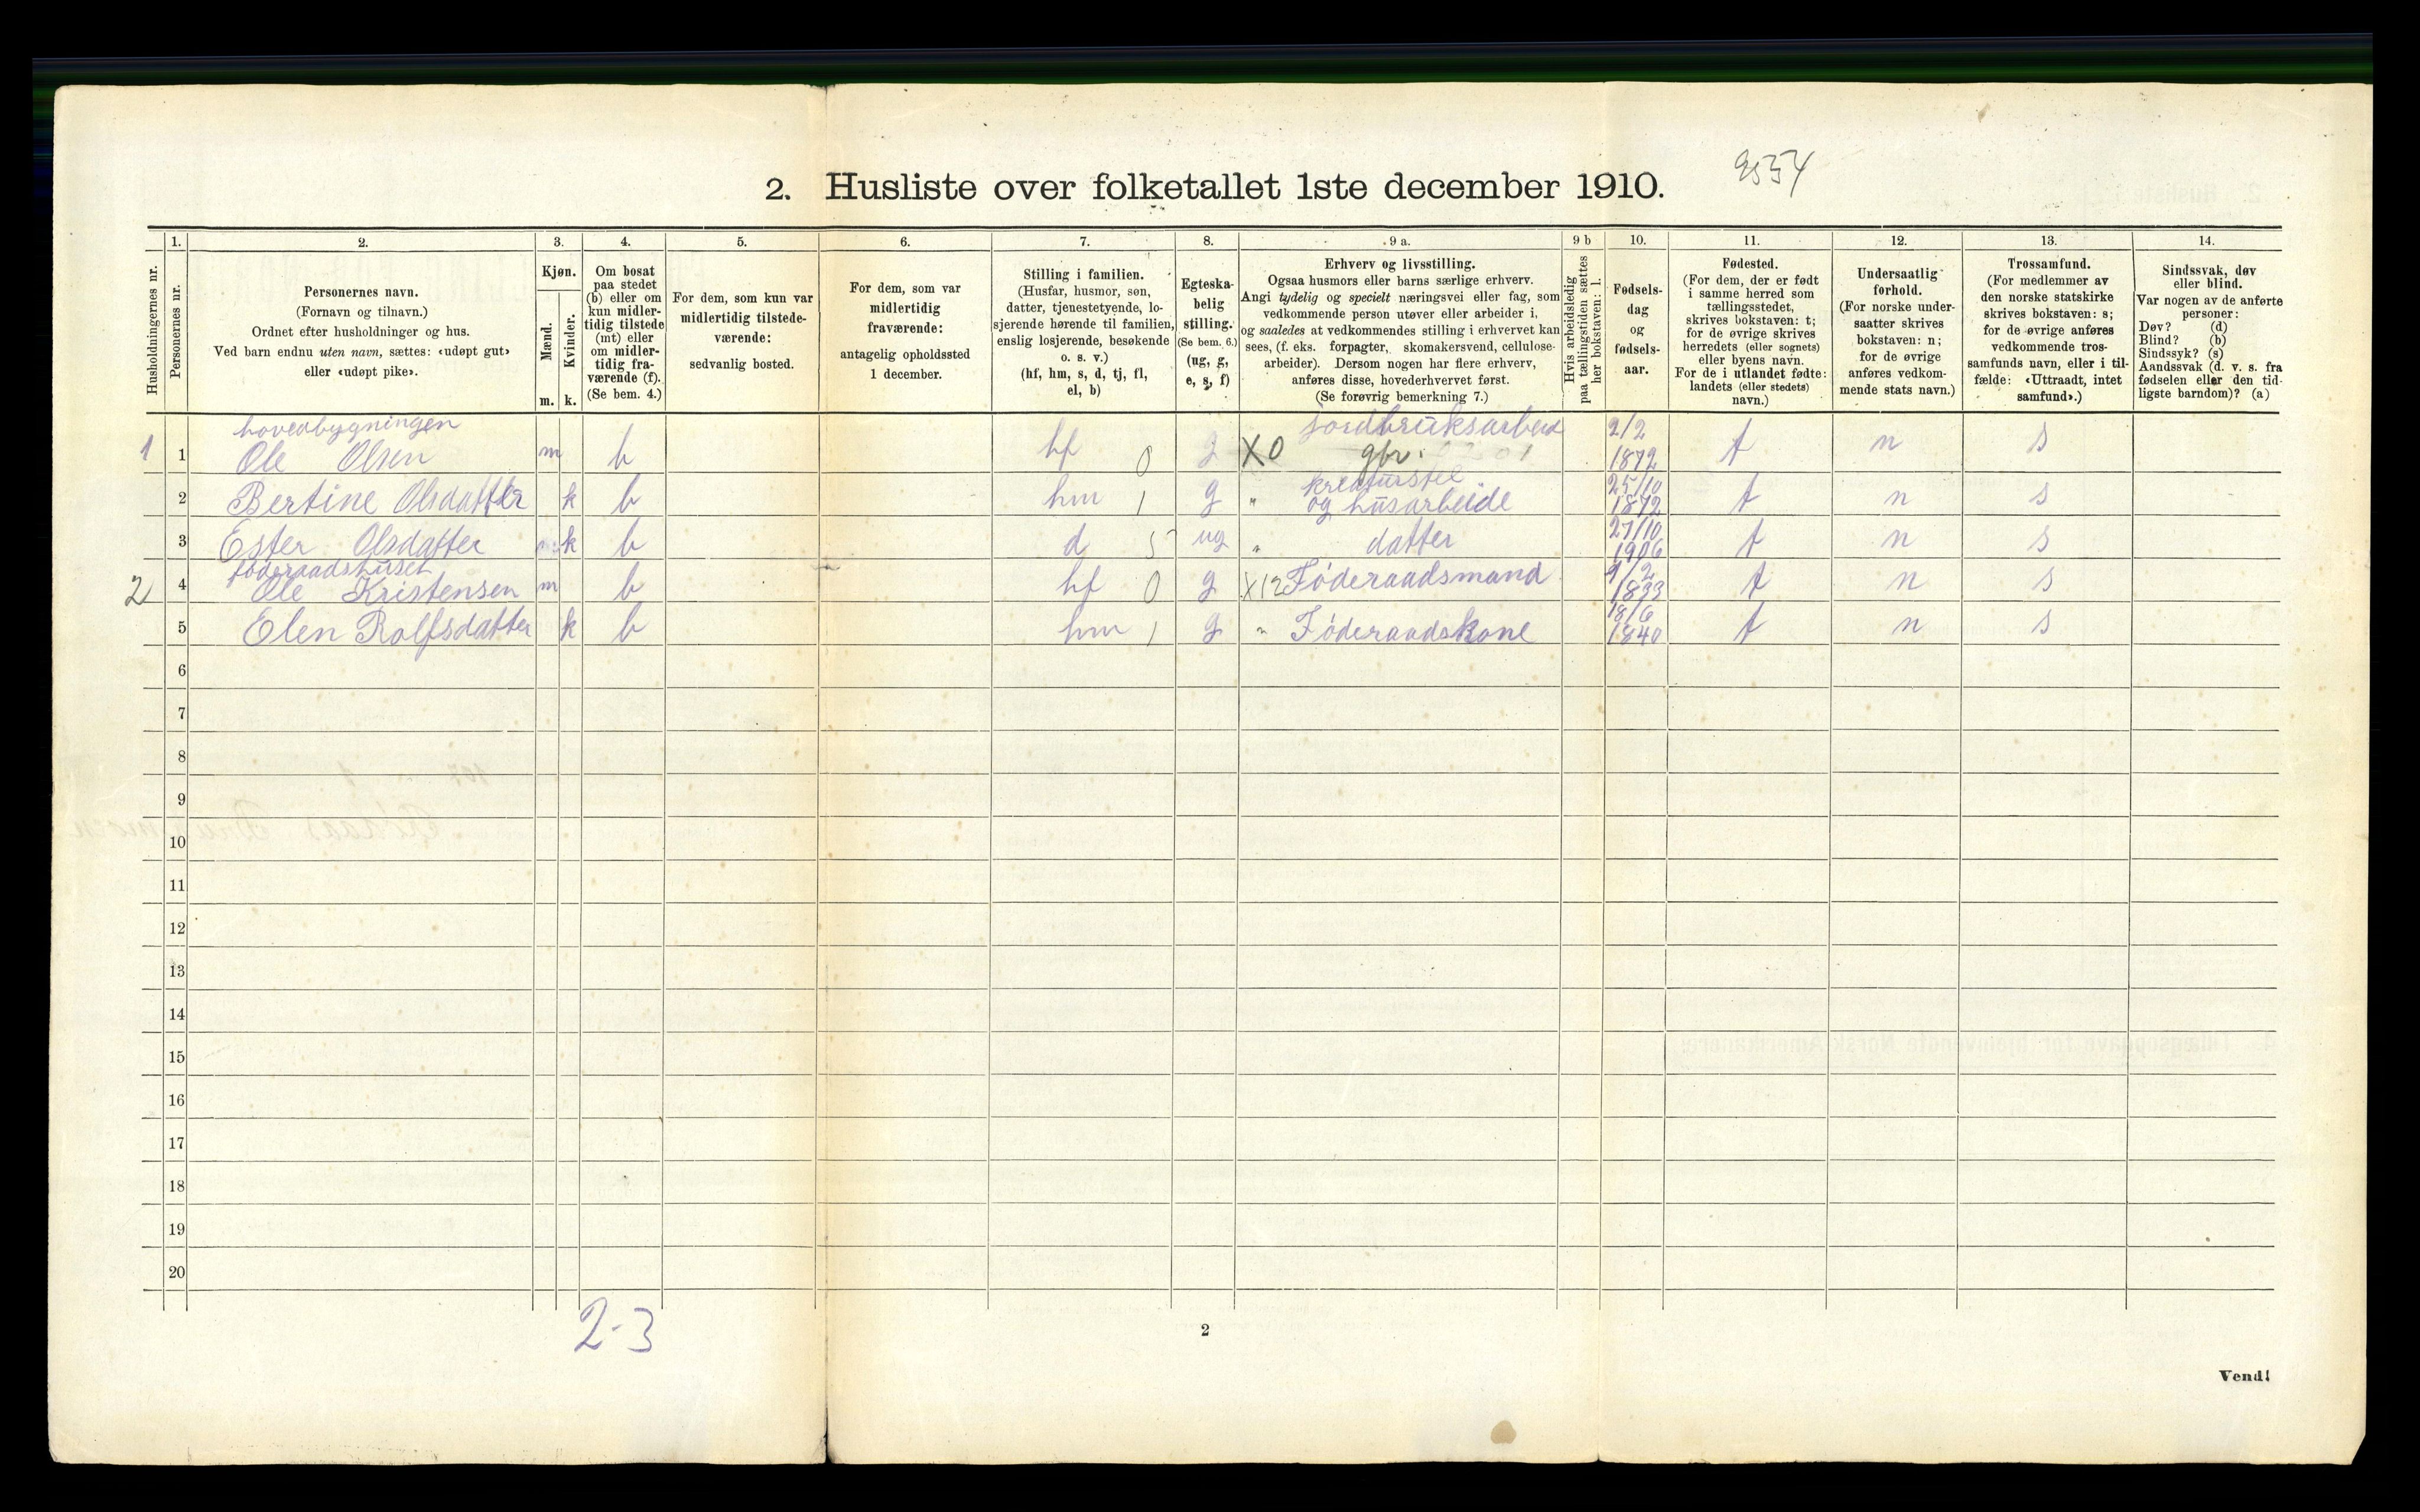 2. Husliste over folketallet 1ste december 1910.
Husholdningernes nr.
1.
Personernes nr.
2.
Personernes navn.
(Fornavn og tilnavn.)
Ordnet efter husholdninger og hus.
Ved barn endnu uten navn, sættes: «udøpt gut»
eller «udøpt pike».
3.
Kjøn.
Mænd.
Kvinder.
m. k.
4.
Om bosat
paa stedet
(b) eller om
kun midler-
tidig tilstede
(mt) eller
om midler-
tidig fra-
værende (f).
(Se bem. 4.)
5.
For dem, som kun var
midlertidig tilstede-
værende:
sedvanlig bosted.
6.
For dem, som var
midlertidig
fraværende:
antagelig opholdssted
1 december.
7.
Stilling i familien.
(Husfar, husmor, søn,
datter, tjenestetyende, lo-
sjerende hørende til familien,
enslig losjerende, besøkende
o. s. v.)
(hf, hm, s, d, tj, fl,
el, b)
8.
Egteska-
belig
stilling.
(Se bem. 6.)
(ug, g,
e, s, f)
9 a.
Erhverv og livsstilling.
Ogsaa husmors eller barns særlige erhverv.
Angi tydelig og specielt næringsvei eller fag, som
vedkommende person utøver eller arbeider i,
og saaledes at vedkommendes stilling i erhvervet kan
sees, (f. eks. forpagter, skomakersvend, cellulose-
arbeider). Dersom nogen har flere erhverv,
anføres disse, hovederhvervet først.
(Se forøvrig bemerkning 7.)
9 b
Hvis arbeidsledig
paa tællingstiden sættes
her bokstaven: l.
10.
Fødsels-
dag
og
fødsels-
aar.
11.
Fødested.
(For dem, der er født
i samme herred som
tællingsstedet,
skrives bokstaven: t;
for de øvrige skrives
herredets (eller sognets)
eller byens navn.
For de i utlandet fødte:
landets (eller stedets)
navn.)
12.
Undersaatlig
forhold.
(For norske under-
saatter skrives
bokstaven: n;
for de øvrige
anføres vedkom-
mende stats navn.)
13.
Trossamfund.
(For medlemmer av
den norske statskirke
skrives bokstaven: s;
for de øvrige anføres
vedkommende tros-
samfunds navn, eller i til-
fælde: «Uttraadt, intet
samfund».)
14.
Sindssvak, døv
eller blind.
Var nogen av de anførte
personer:
Døv? (d)
Blind? (b)
Sindssyk? (s)
Aandssvak (d. v. s. fra
fødselen eller den tid-
ligste barndom)? (a)
hovedbygningen jordbruksarbeid 2/2
1 1 Ole Olsen m b hf 0 g X0 gbr. 1872 t n s
kreaturstel 25/10
2 Bertine Olsdatter k b hm 1 g " og husarbeide 1872 t n s
27/10
3 Ester Olsdatter k b d 5 ug " datter 1906 t n s
føderaadshuset
2 4 Ole Kristensen m b hf 0 g X12 Føderaadsmand 9/2 1833 t n s
18/6
5 Elen Rolfsdatter k b hm 1 g " Føderaadskone 1840 t n s
6
7
8
9
10
11
12
13
14
15
16
17
18
19
20
2-3
2
Vend!